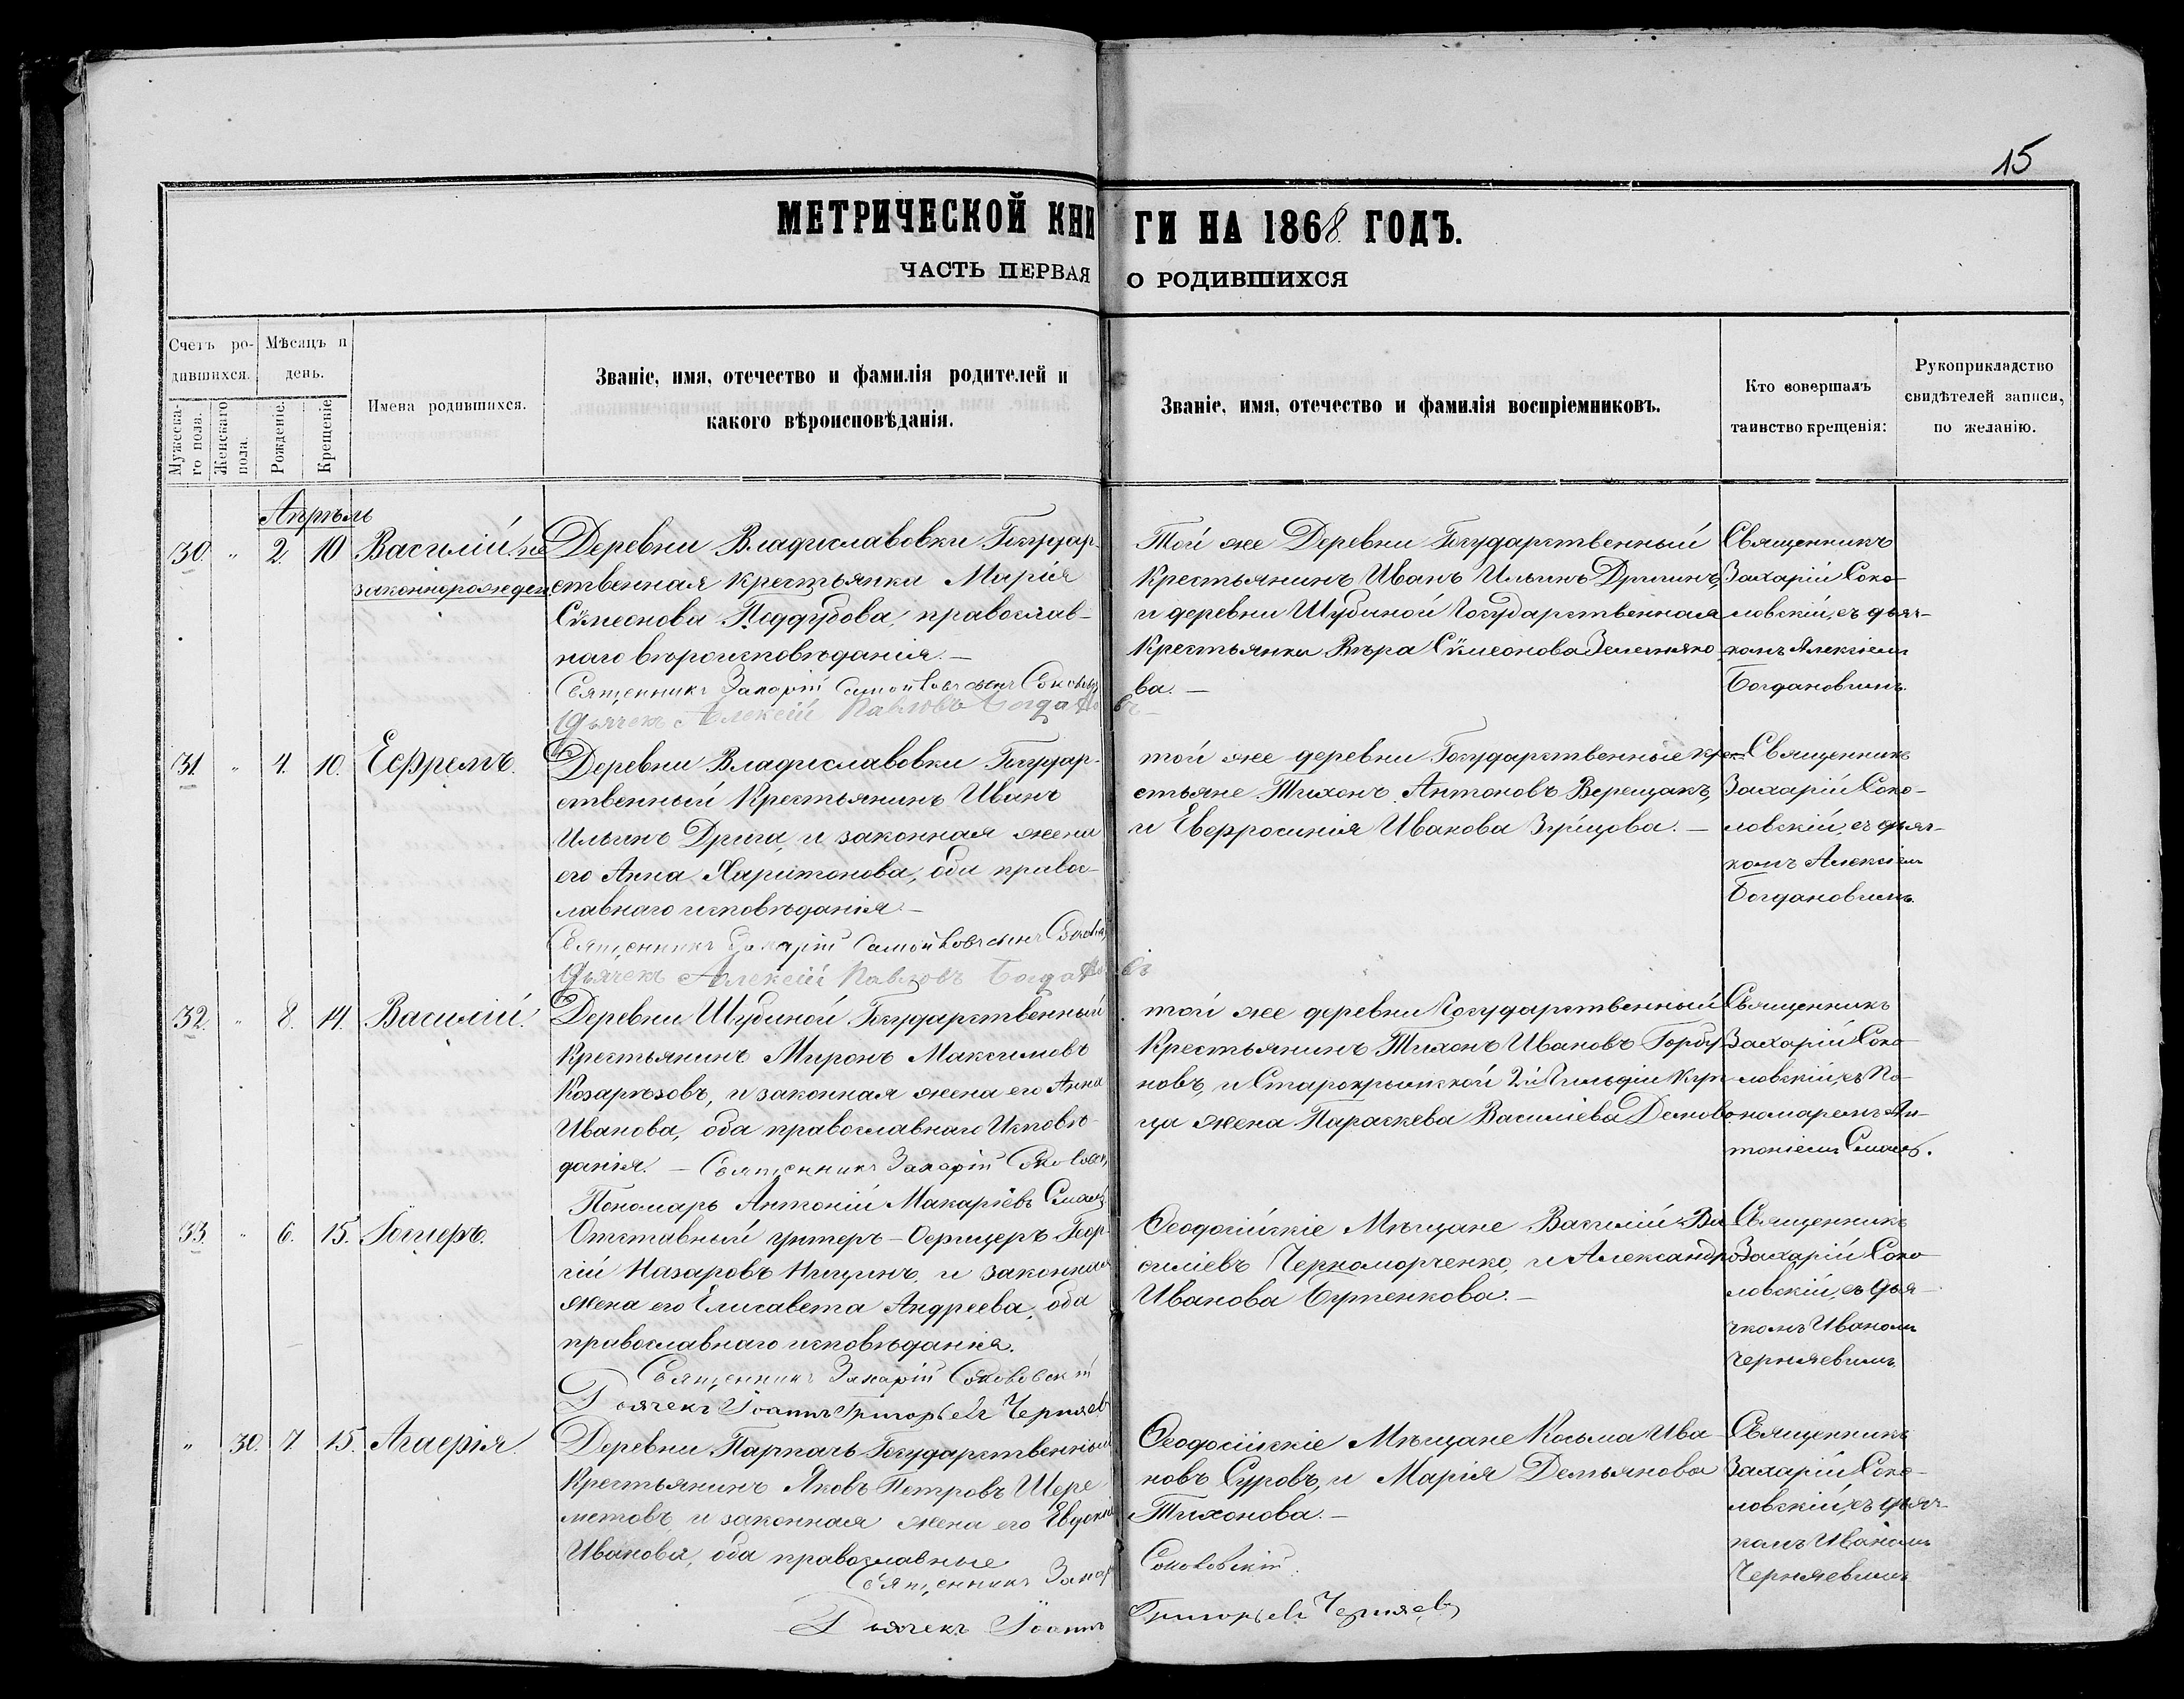 15
МЕТРИЧЕСКОЙ КНИГИ НА 1868 ГОДЪ.
ЧАСТЬ ПЕРВАЯ О РОДИВШИХСЯ
Счетъ ро-
дившихся.
Мужеска-
го пола.
Женскаго
пола.
Мѣсяцъ и
день.
Рожденіе.
Крещеніе
Имена родившихся.
Званіе, имя, отечество и фамилія родителей и
какого вѣроисповѣданія.
Званіе, имя, отечество и фамилія воспріемниковъ.
Кто совершалъ
таинство крещенія:
Рукоприкладство
свидѣтелей записи,
по желанію.
Апрѣль
30. " 2. 10 Василій, не
законнорожден.
Деревни Владиславовки Государ-
ственная крестьянка Марія
Сѵмеонова Поддубова, православ-
наго вѣроисповѣданія. —
Священникъ Захарій Самойловъ сынъ
Дьячекъ Алексій Павловъ
Той же Деревни Государственный
Крестьянинъ Иванъ Ильинъ Дригинъ,
и деревни Шубиной Государственная
Крестьянка Вѣра Сѵмеонова
ва. —
Священникъ
Захарій Соко-
ловскій, съ дьяч-
комъ Алексіемъ
Богдановымъ.
31. " 4. 10. Ефремъ.
Деревни Владиславовки Государ-
ственный Крестьянинъ Иванъ
Ильинъ Дрига, и законная жена
его Анна Харитонова, оба правос-
лавнаго исповѣданія —
Священникъ Захарій Самойловъ сынъ
Дьячекъ Алексій Павловъ
той же деревни Государственные кре-
стьяне Тихонъ Антоновъ Верещакъ,
и Евфросинія Иванова —
Священникъ
Захарій Соко-
ловскій, съ дьяч-
комъ Алексіемъ
Богдановымъ.
32. " 8. 14. Василій.
Деревни Шубиной Государственный
Крестьянинъ Миронъ Максимовъ
Козарѣзовъ, и законная жена его Анна
Иванова, оба православнаго Исповѣ-
данія. — Священникъ Захарій
Пономарь Антоній Макаріевъ
той же деревни Государственный
Крестьянинъ Тихонъ Ивановъ Горбу
новъ, и Старокрымской 2й Гильдіи Куп
ца жена Параскева Василіева
Священникъ
Захарій Соко-
ловскій, съ По-
номаремъ Ан-
тоніемъ
33. " 6. 15.
Отставный унтеръ-Офицеръ Геор-
гій Назаровъ и законная
жена его Елисавета Андреева, оба
православнаго исповѣданія.
Священникъ Захарій Соколовскій
Дьячекъ Іоаннъ Григорьевъ Черняевъ
Ѳеодосійскіе Мѣщане Василій Ва
силіевъ Черноморченко, и Александра
Иванова —
Священникъ
Захарій Соко-
ловскій, съ дья-
чкомъ Иваномъ
Черняевымъ
" 30. 7. 15.
Деревни Парпачь Государственный
Крестьянинъ Яковъ Петровъ Шере
метовъ, и законная жена его Евдокія
Иванова, оба православные
Священникъ Захар
Соколовскій.
Дьячекъ Іоаннъ
Григорьевъ Черняевъ
Ѳеодосійскіе Мѣщане Косьма Ива
новъ Суровъ, и Марія Демьянова
Тихонова. —
Священникъ
Захарій Соко-
ловскій, съ дьяч-
комъ Иваномъ
Черняевымъ